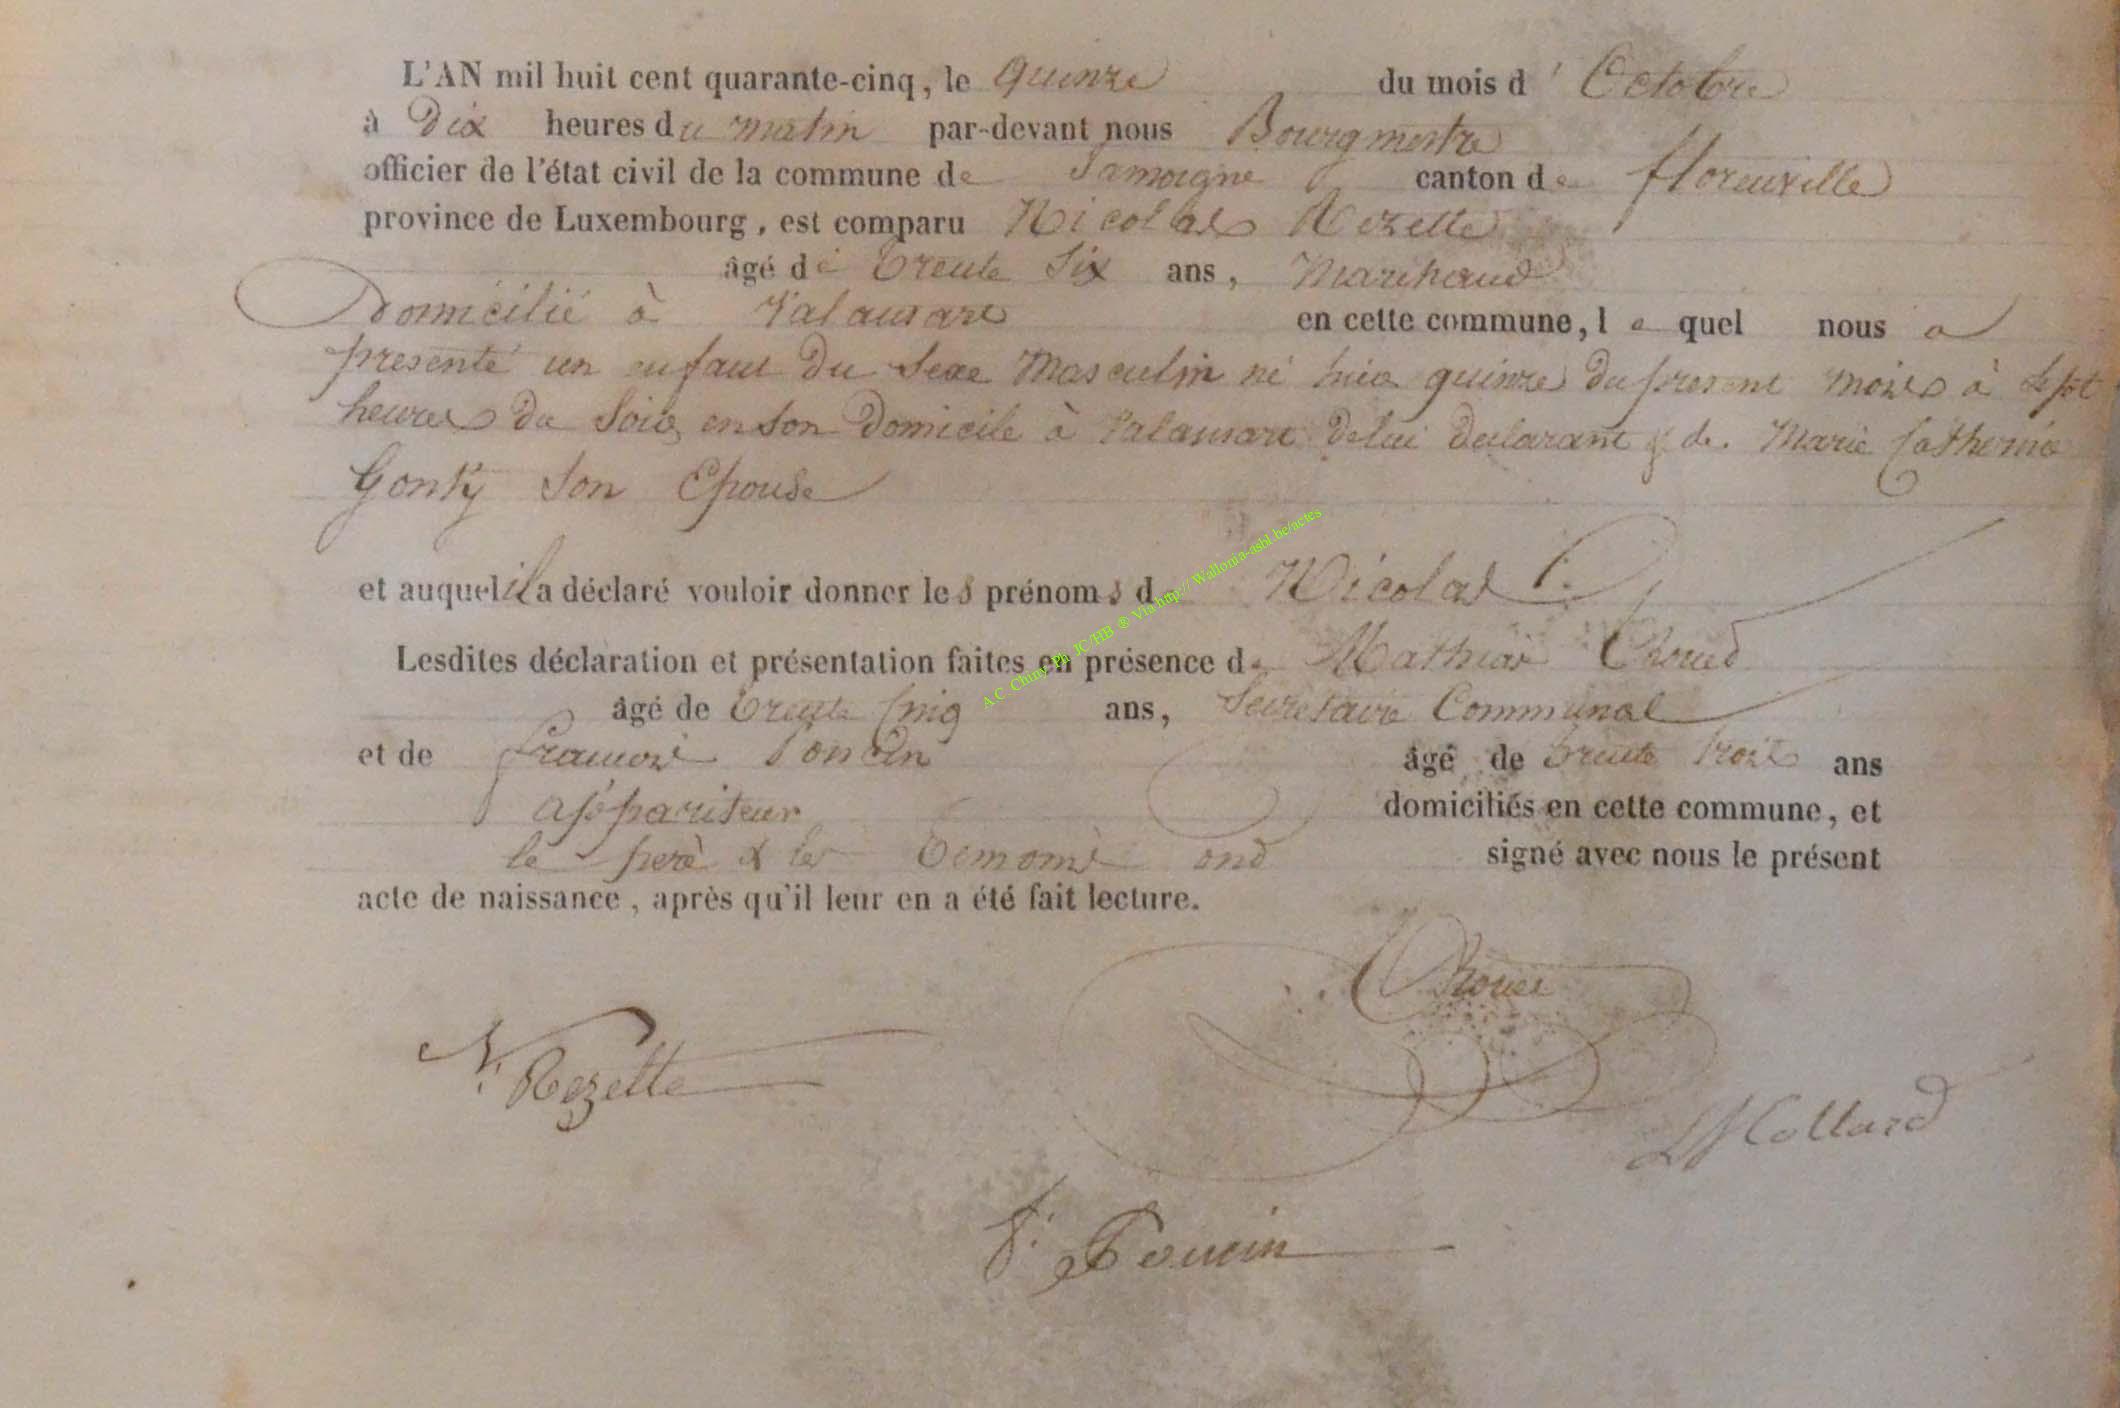 L'AN mil huit cent quarante-cinq, le Quinze du mois d' Octobre
à Dix heures du matin par-devant nous Bourgmestre
officier de l'état civil de la commune de Jamoigne canton de florenville
province de Luxembourg, est comparu Nicolas Rezette
âgé de trente Six ans, Marchand
Domicilié à Valansart en cette commune, lequel nous a
presenté un enfant du Sexe Masculin né hier quinze du present mois à Sept
heures du Soir, en son Domicile à Valansart De lui declarant & de Marie Catherine
Gonry Son Epouse
et auquel il a déclaré vouloir donner les prénoms d Nicolas
Lesdites déclaration et présentation faites en présence de Mathias
âgé de trente Cinq ans, Secretaire Communal
et de francois Poncin âgé de trente trois ans
appariteur domiciliés en cette commune, et
le père & les temoins ond signé avec nous le présent
acte de naissance, après qu'il leur en a été fait lecture.
N. Rezette
LJ Collard
F. Poncin
A C Chiny Ph JC/HB ® Via http://Wallonia-asbl.be/actes